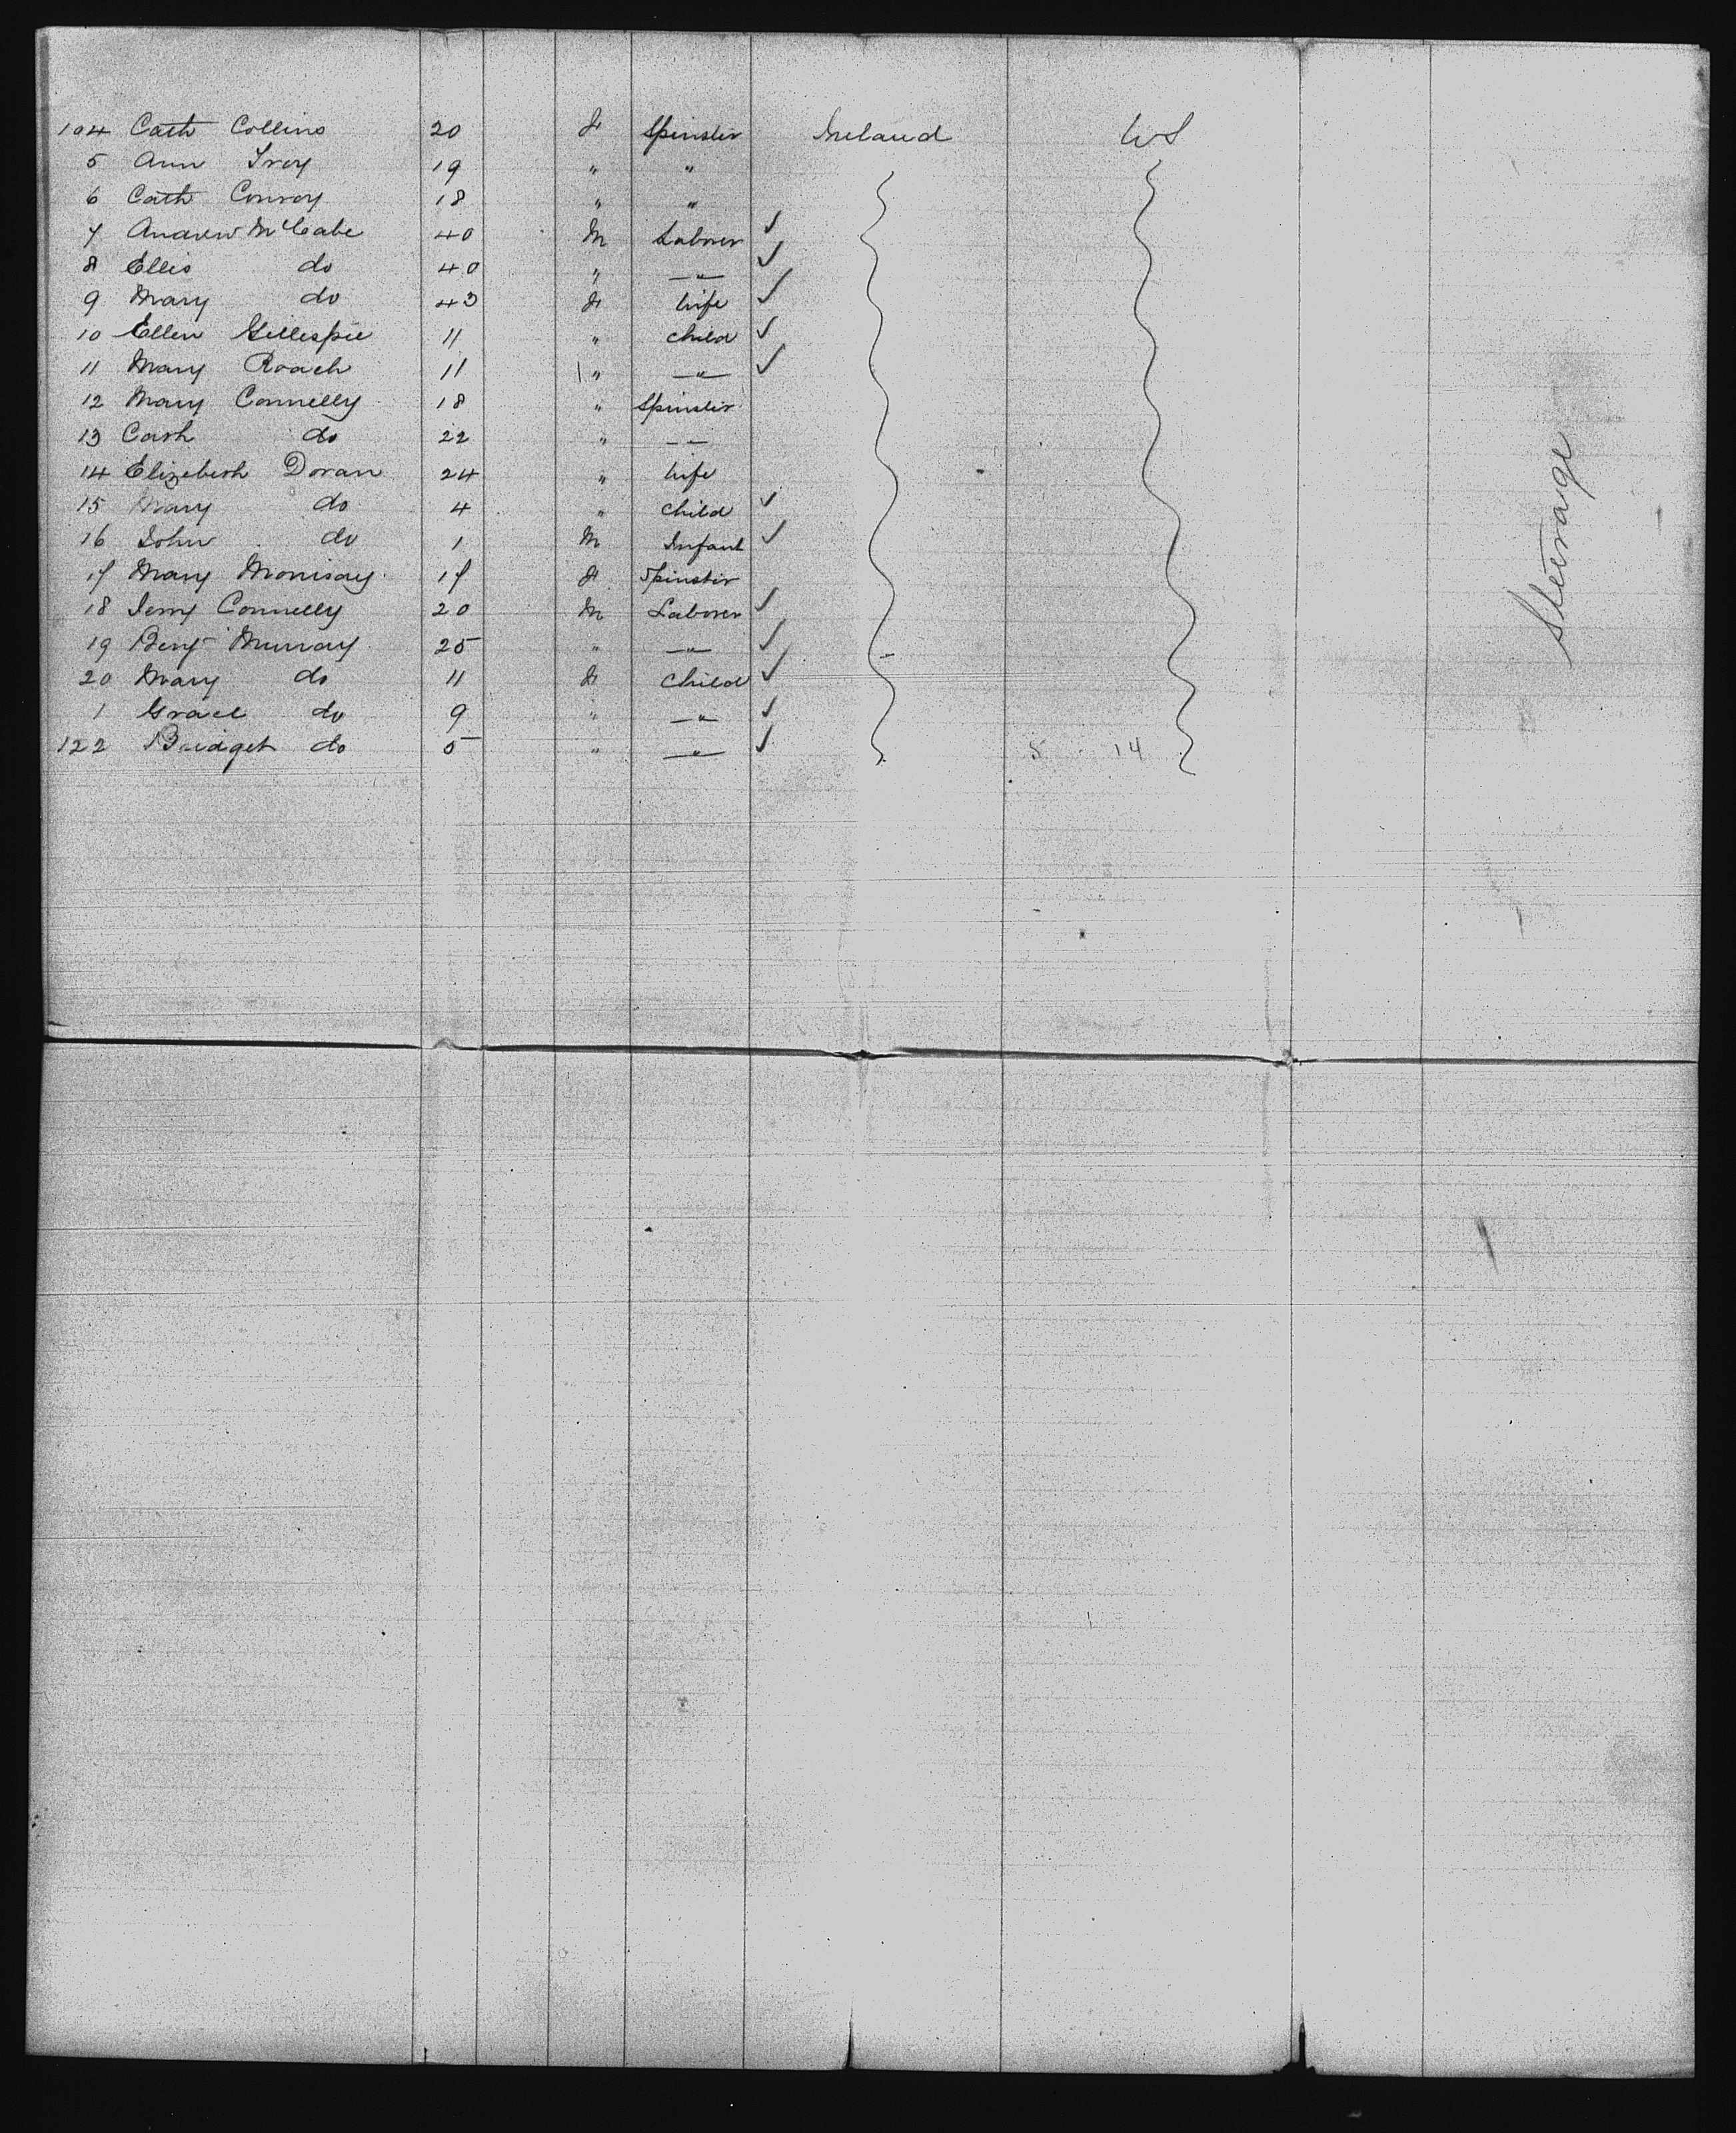 104 Cath Collins 20 F Spinster Ireland US
5 Ann Troy 19 " "
6 Cath Conroy 18 " "
7 Andrew McCabe 40 M Laborer ✓
8 Ellis do 40 " — " — ✓
9 Mary do 43 F Wife ✓
10 Ellen Gillespie 11 " Child ✓
11 Mary Roach 11 " — " — ✓
12 Mary Connelly 18 " Spinster
13 Cath do 22 " — —
14 Elizebeth Doran 24 " Wife
15 Mary do 4 " Child ✓
16 John do 1 M Infant ✓
17 Mary 17 F Spinster
18 Jerry Connelly 20 M Laborer ✓
19 Benj Murray 25 " — " — ✓
20 Mary do 11 F Child ✓
1 Grace do 9 " — " — ✓
122 Bridget do 5 " — " — ✓ 14
Steerage